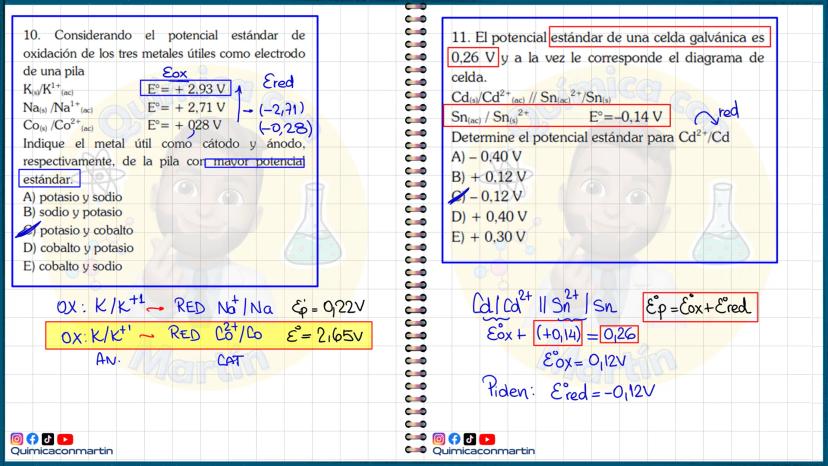 10. Considerando el potencial estándar de
oxidación de los tres metales útiles como electrodo
de una pila
Eox
Ered
K(s)/K¹⁺(ac) E°= + 2,93 V
Na(s) /Na¹⁺(ac) E°= + 2,71 V (-2,71)
Co(s) /Co²⁺(ac) E°= + 028 V (-0,28)
Indique el metal útil como cátodo y ánodo,
respectivamente, de la pila con mayor potencial
estándar.
A) potasio y sodio
B) sodio y potasio
C) potasio y cobalto
D) cobalto y potasio
E) cobalto y sodio
OX: K/K⁺¹ → RED Na⁺/Na Ep° = 0,22V
OX: K/K⁺¹ → RED Co²⁺/Co E° = 2,65V
AN. CAT
Martín
Quimicaconmartin
11. El potencial estándar de una celda galvánica es
0,26 V y a la vez le corresponde el diagrama de
celda.
Cd(s)/Cd²⁺(ac) // Sn(ac)²⁺/Sn(s)
Sn(ac) / Sn(s)²⁺ E°=–0,14 V
red
Determine el potencial estándar para Cd²⁺/Cd
A) – 0,40 V
B) + 0,12 V
C) – 0,12 V
D) + 0,40 V
E) + 0,30 V
Cd/Cd²⁺ // Sn²⁺ / Sn E°p = E°ox + E°red
E°ox + (+0,14) = 0,26
E°ox = 0,12V
Piden: E°red = -0,12V
Martín
Quimicaconmartin